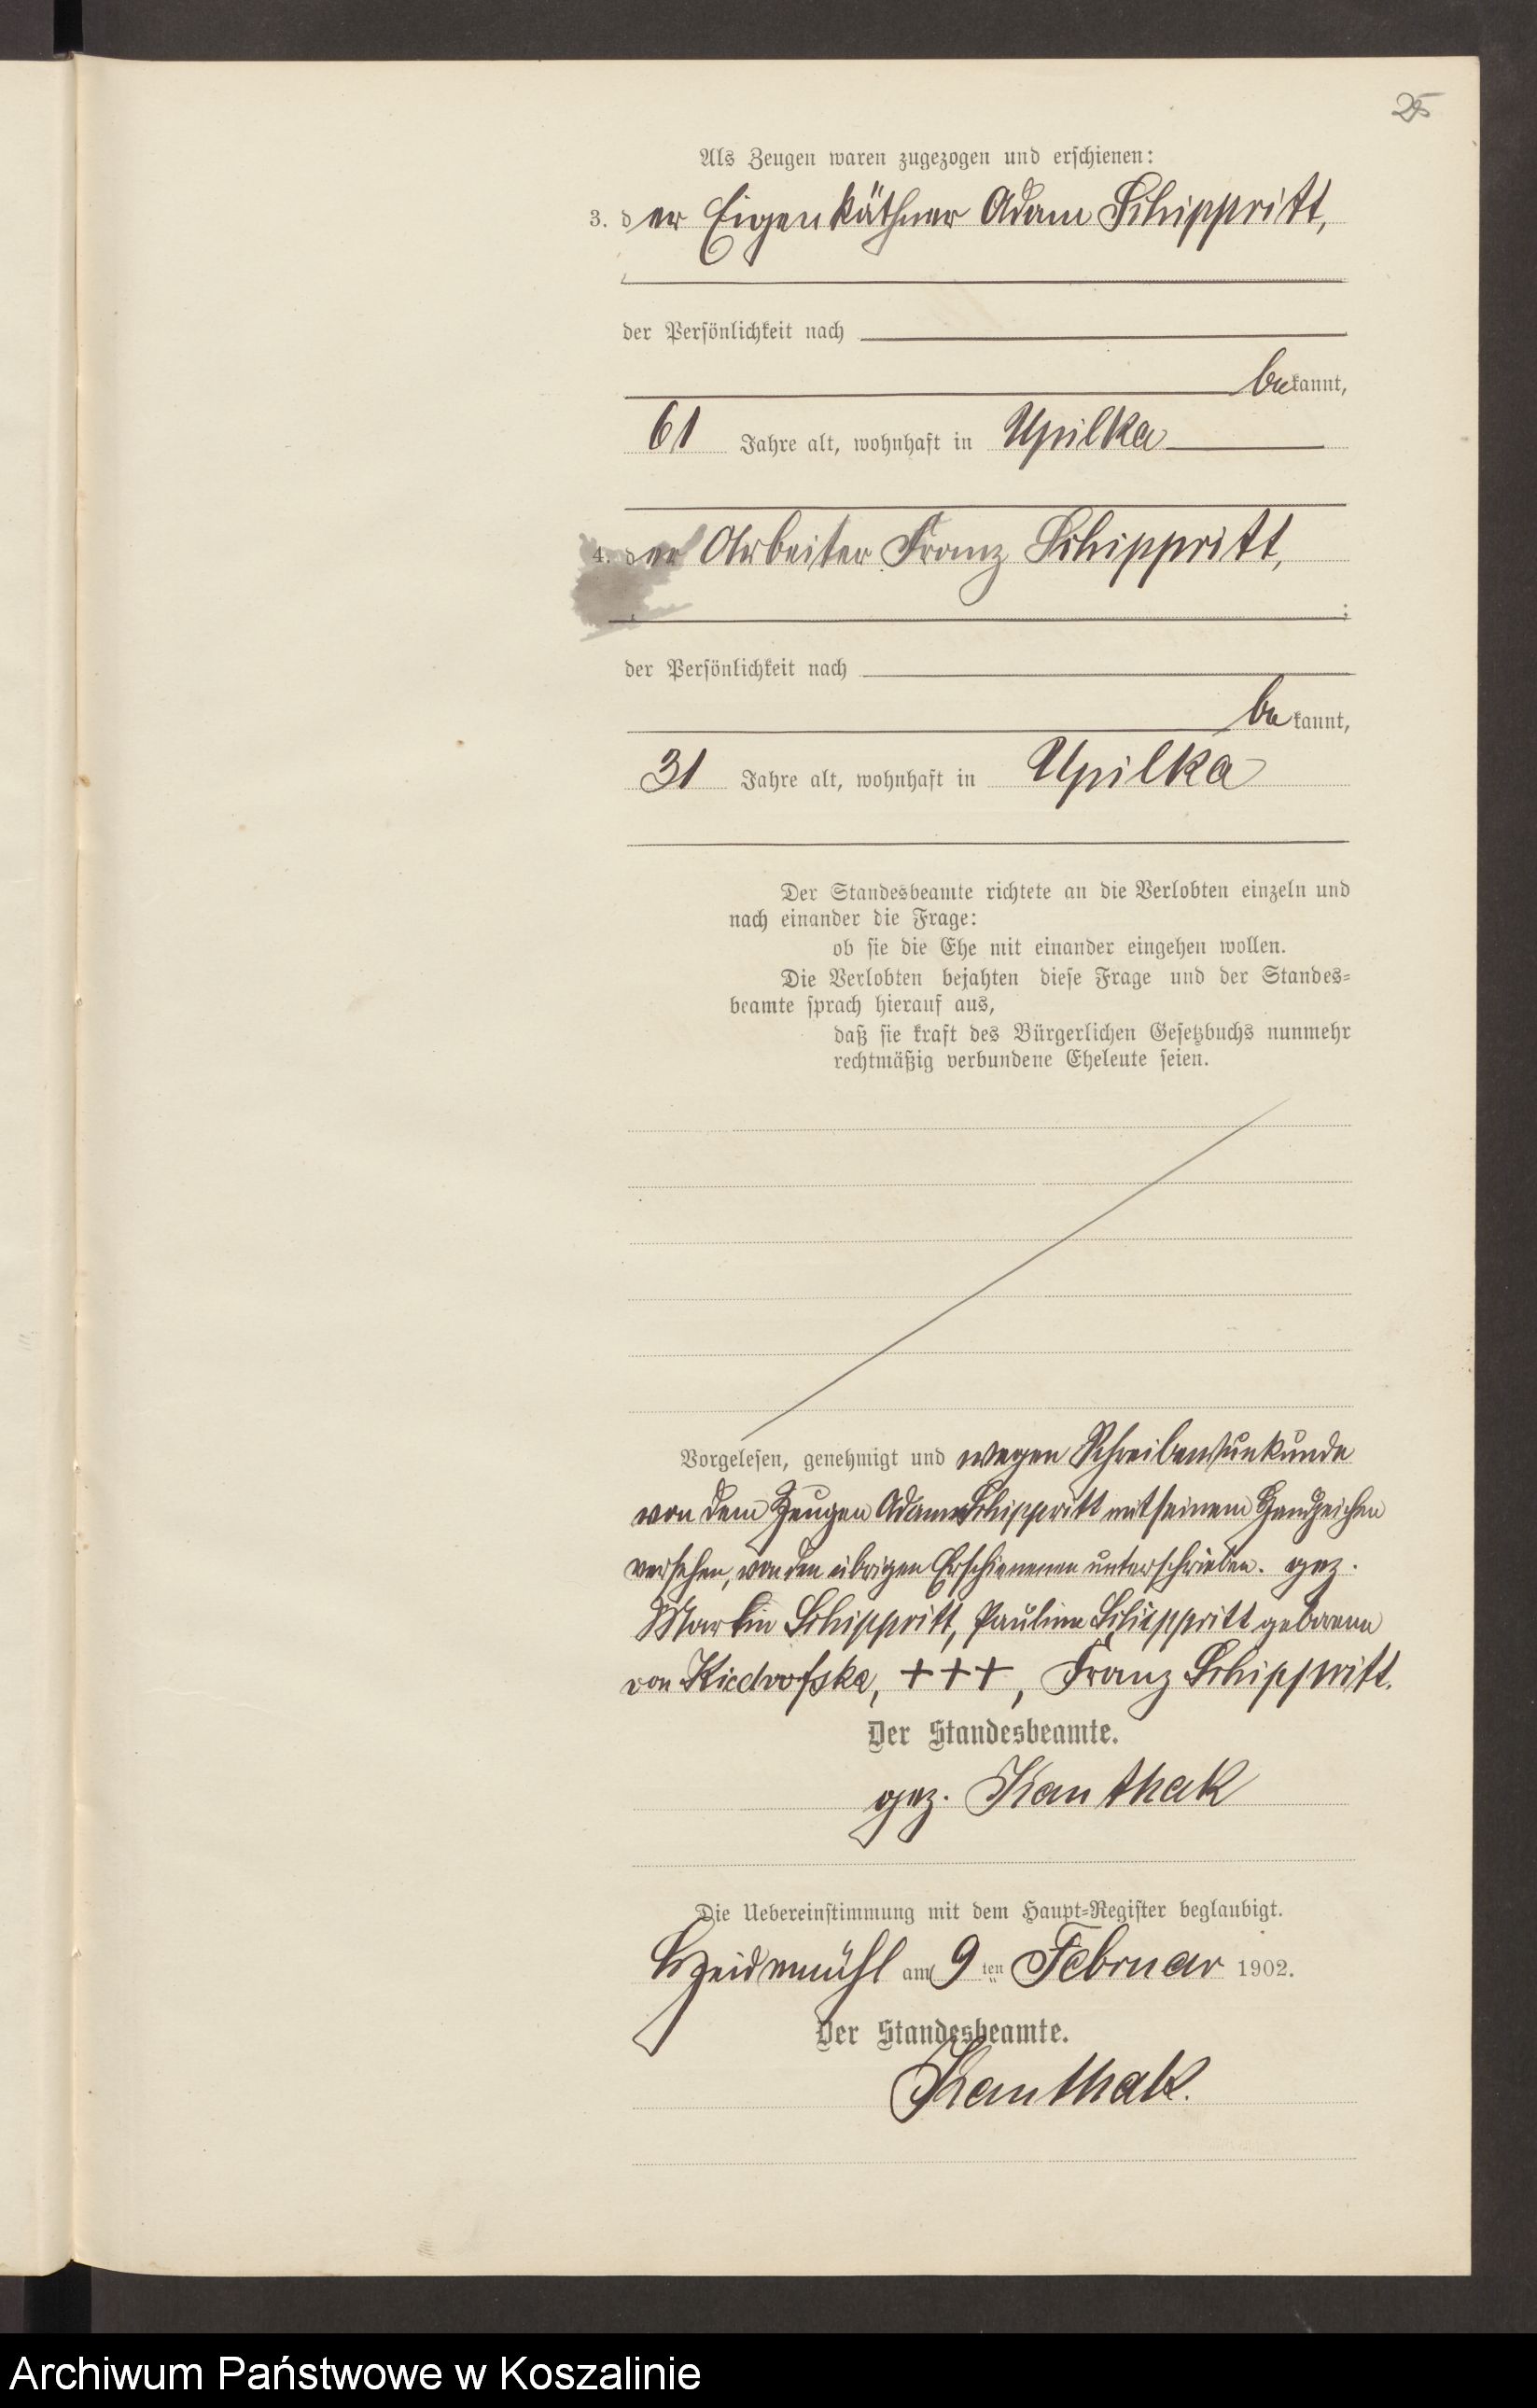 25
Als Zeugen waren zugezogen und erschienen:
3. der Eigenkäthner Adam Schippritt,
der Persönlichkeit nach
bekannt,
61 Jahre alt, wohnhaft in Upilka
4. der Arbeiter Franz Schippritt,
;
der Persönlichkeit nach
bekannt,
31 Jahre alt, wohnhaft in Upilka
Der Standesbeamte richtete an die Verlobten einzeln und
nach einander die Frage:
ob sie die Ehe mit einander eingehen wollen.
Die Verlobten bejahten diese Frage und der Standes=
beamte sprach hierauf aus,
daß sie kraft des Bürgerlichen Gesetzbuchs nunmehr
rechtmäßig verbundene Eheleute seien.
Vorgelesen, genehmigt und wegen Schreibensunkunde
von dem Zeugen Adam Schippritt mit seinem Handzeichen
versehen, von den übrigen Erschienenen unterschrieben. gez.
Martin Schippritt, Pauline Schippritt geborene
von +++, Franz Schippritt.
Der Standesbeamte.
gez. Kanthak
Die Uebereinstimmung mit dem Haupt=Register beglaubigt.
am 9ten Februar 1902.
Der Standesbeamte.
Kanthak.
Archiwum Państwowe w Koszalinie